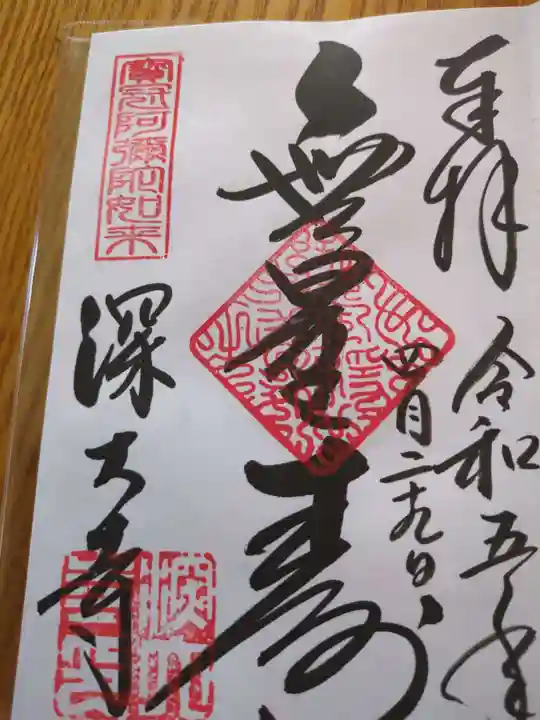 奉拝
令和五年
四月二十九日
無量寿
寶冠阿彌陀如来
深大寺